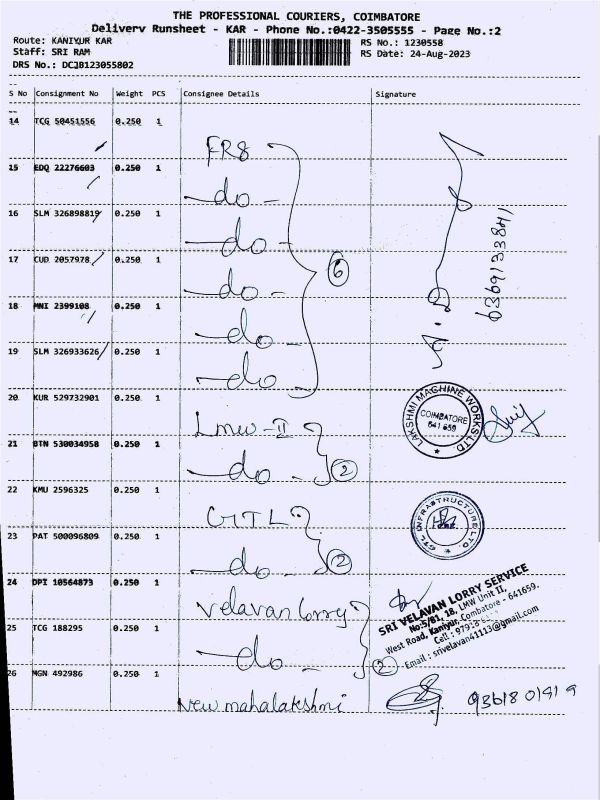 THE PROFESSIONAL COURIERS, COIMBATORE
Delivery Runsheet - KAR - Phone No.:0422-3505555 - Page No.:2
Route: KANIYUR KAR
RS No.: 1230558
Staff: SRI RAM
RS Date: 24-Aug-2023
DRS No.: DCJB123055802
S No Consignment No Weight PCS Consignee Details Signature
14 TCG 50451556 0.250 1
FR8
15 EDQ 22276603 0.250 1
-do-
16 SLM 326898819 0.250 1
-do-
17 CUD 2057978 0.250 1
-do-
6
18 MNI 2399108 0.250 1
-do-
19 SLM 326933626 0.250 1
-do-
6369133841
20 KUR 529732901 0.250 1
Lmw-II
LAKSHMI MACHINE WORKS LTD
COIMBATORE
641 659
21 BTN 530034958 0.250 1
-do-
2
22 KMU 2596325 0.250 1
GTL
GTL INFRASTRUCTURE LTD.
23 PAT 500096809 0.250 1
-do-
2
24 DPI 10564873 0.250 1
Velavan lorry
SRI VELAVAN LORRY SERVICE
No:5/81, 18, LMW Unit II,
West Road, Kaniyur, Coimbatore - 641659.
Cell :
Email : srivelavan41113@gmail.com
25 TCG 188295 0.250 1
-do-
2
26 MGN 492986 0.250 1
New mahalakshmi